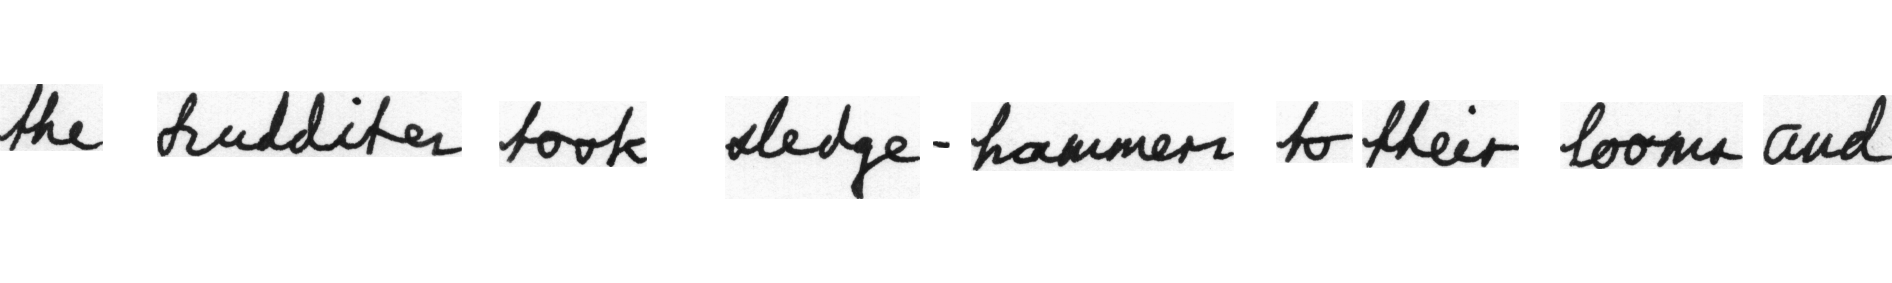 the Luddites took sledge-hammers to their looms and